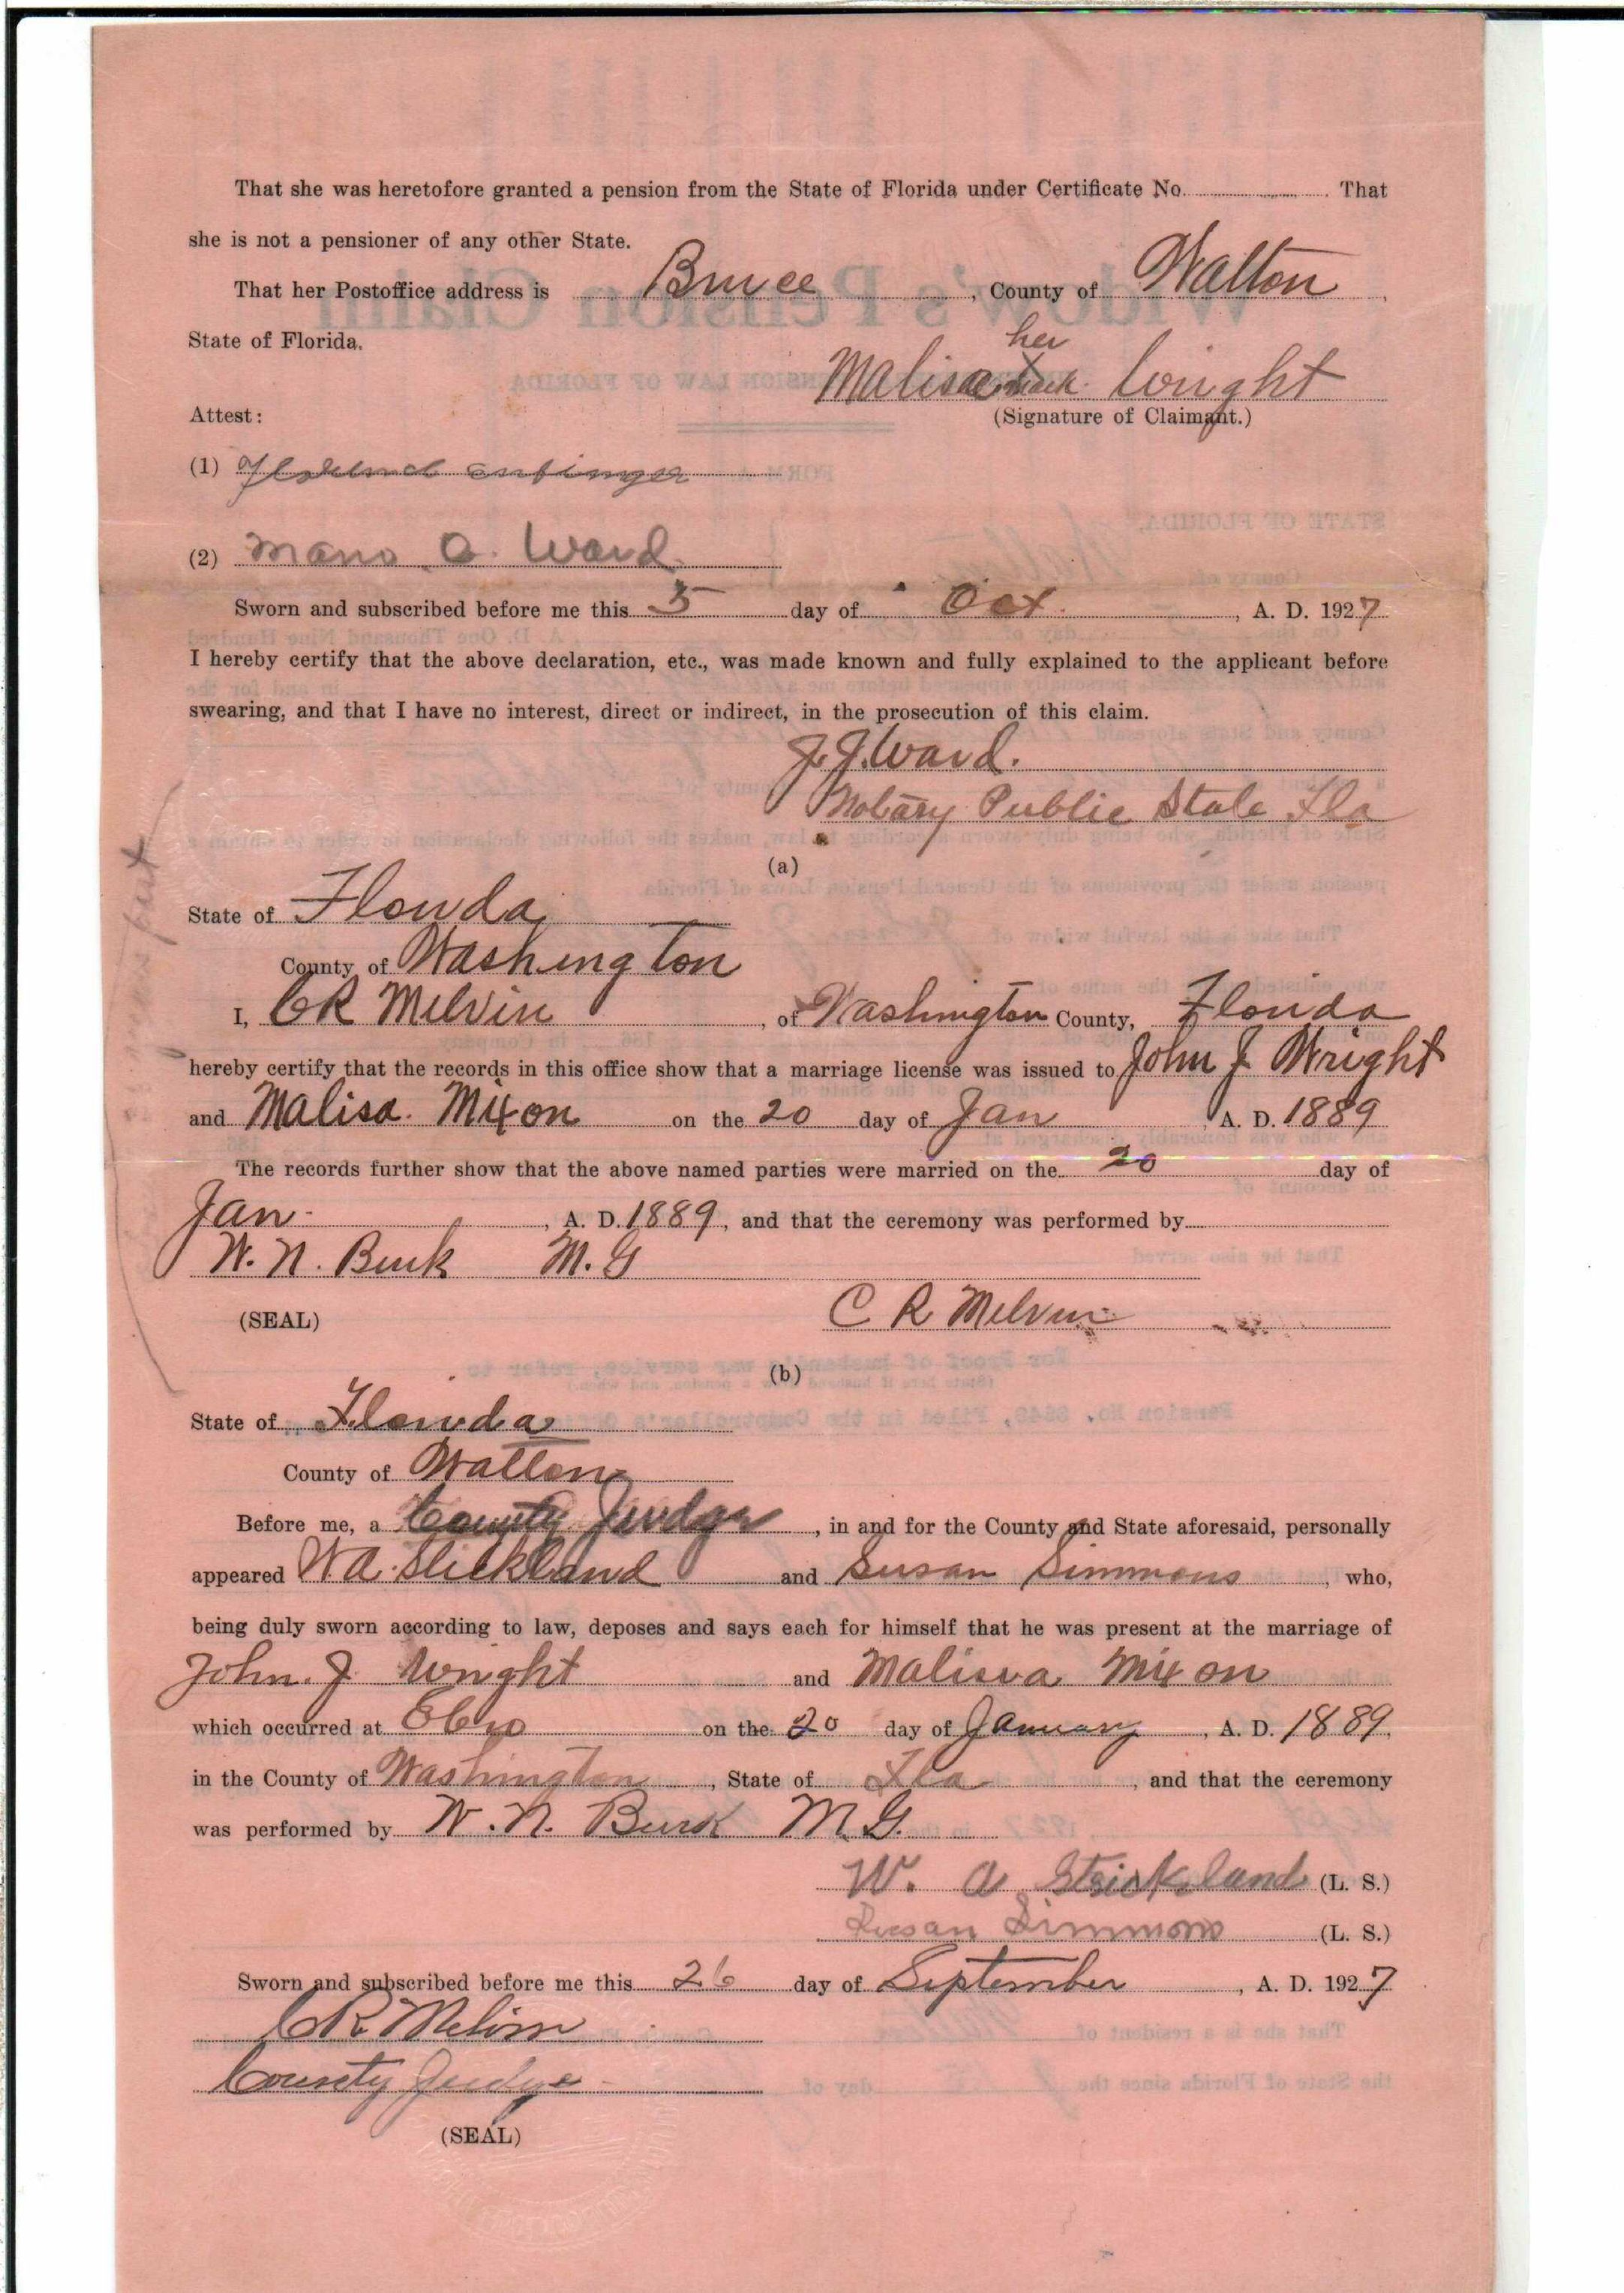 That she was heretofore granted a pension from the State of Florida under Certificate No. . That
she is not a pensioner of any other State.
That her Postoffice address is Bruce , County of Walton ,
State of Florida.
her
Malisa X mark Wright
Attest: (Signature of Claimant.)
(1)
(2) A. Ward
Sworn and subscribed before me this 5 day of Oct. , A. D. 1927
I hereby certify that the above declaration, etc., was made known and fully explained to the applicant before
swearing, and that I have no interest, direct or indirect, in the prosecution of this claim.
J. J. Ward.
Notary Public State Fla
(a)
State of Florida
County of Washington
I, C R Melvin , of Washington County, Florida
hereby certify that the records in this office show that a marriage license was issued to John J Wright
and Malisa Mixon on the 20 day of Jan , A. D. 1889
The records further show that the above named parties were married on the 20 day of
Jan , A. D. 1889, and that the ceremony was performed by
W. N. Burk M. G
(SEAL) C R Melvin
(b)
State of Florida
County of Walton
Before me, a County Judge , in and for the County and State aforesaid, personally
appeared W A. Strickland and Susan Simmons , who,
being duly sworn according to law, deposes and says each for himself that he was present at the marriage of
John. J Wright and Malissa Mixon
which occurred at Ebro on the 20 day of January , A. D. 1889,
in the County of Washington , State of Fla , and that the ceremony
was performed by W. N. Burk M. G.
W. A Strickland (L. S.)
Susan Simmons (L. S.)
Sworn and subscribed before me this 26 day of September , A. D. 1927
C R Melvin
County Judge
(SEAL)